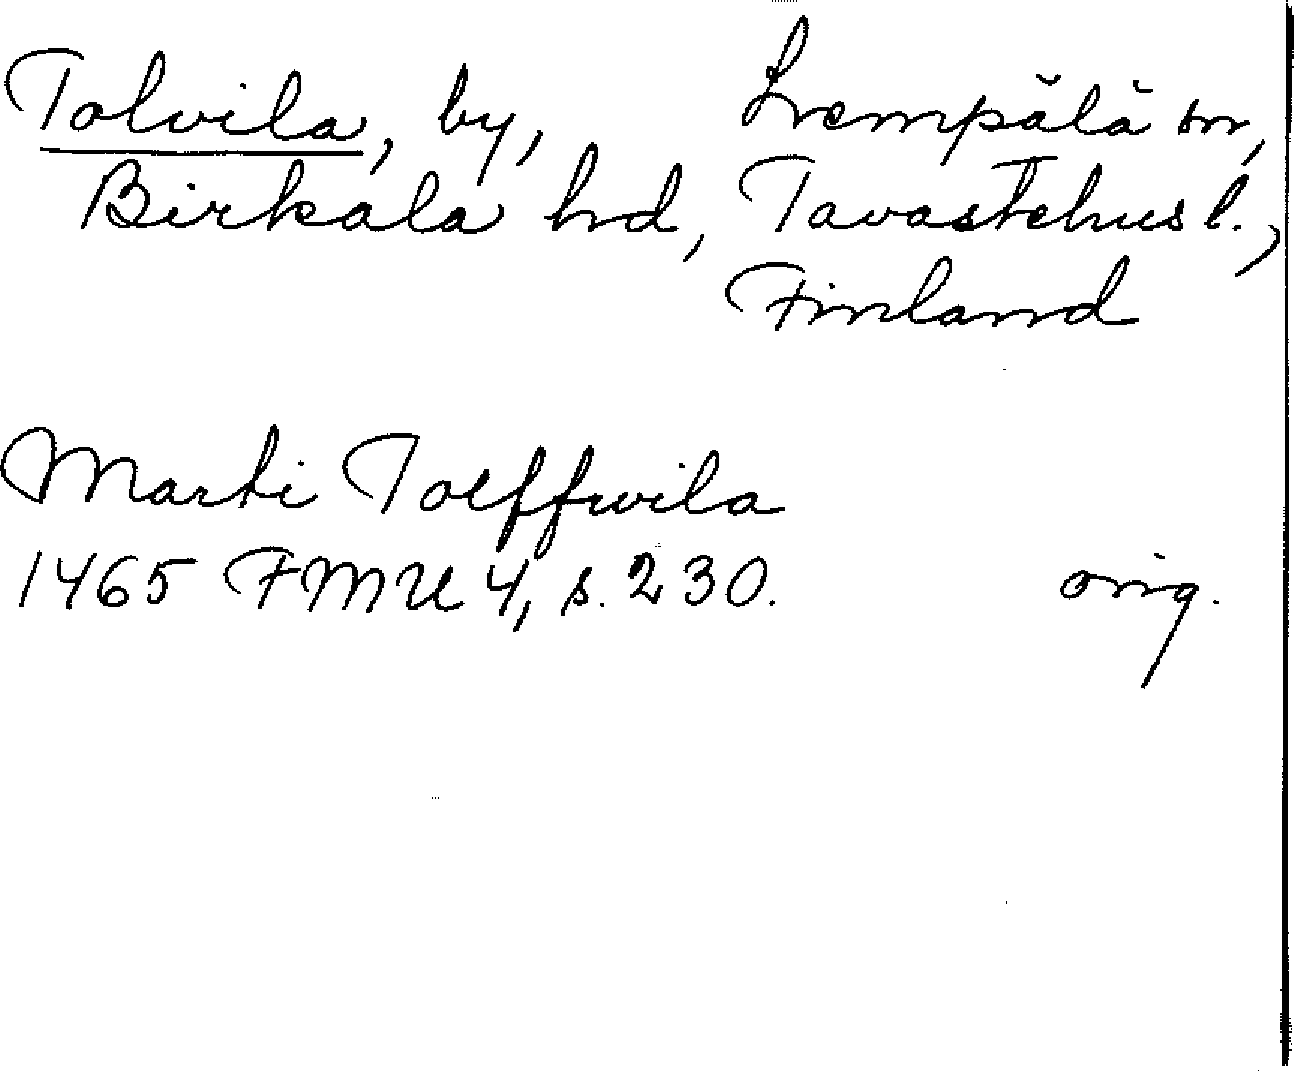 Tolvila, by, Lempälä sn,
Birkala hd, Tavastehus l.,
Finland
Marti Tolffwila
1465 FMU 4, s. 230. orig.